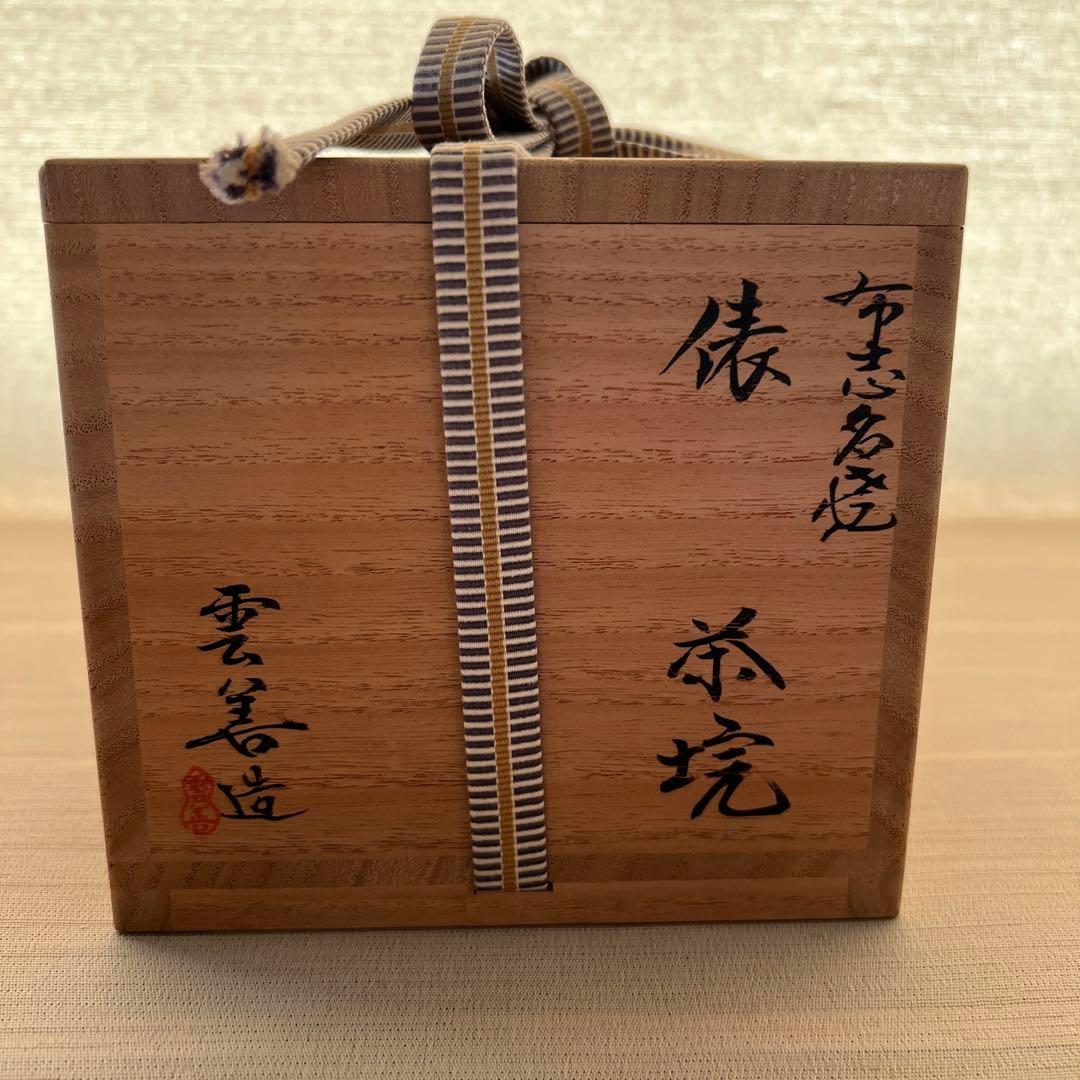 布志名焼
俵 茶垸
雲善造